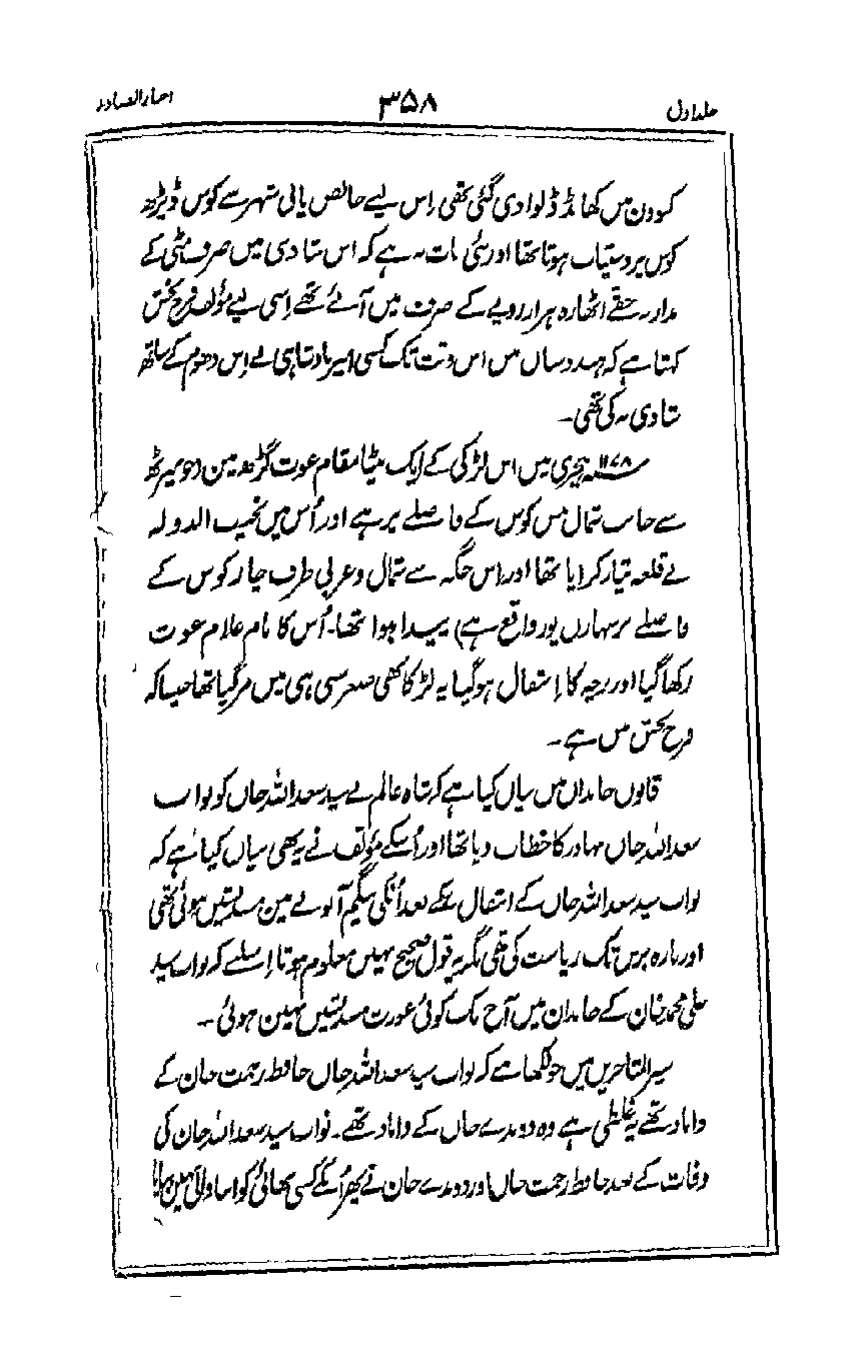 جلد اول ۳۵۸ اخبار الصنادید
کوون میں کھانڈ ڈلوا دی گئی تھی اِس لیے خالص پانی شہر سے کوس ڈیڑھ
کوس پر دستیاب ہوتا تھا اور نئی بات یہ ہے کہ اس شادی میں صرف مٹی کے
مداریہ حقے اٹھارہ ہزار روپے کے صرف میں آئے تھے اِسی لیے مؤلف فرح بخش
کہتا ہے کہ ہندوستان میں اس وقت تک کسی امیر بادشاہی نے اِس دھوم کے ساتھ
شادی نہ کی تھی۔
۱۱۷۸ ہجری میں اس لڑکی کے ایک بیٹا مقام غوث گڑھ مین (جو میرٹھ
سے جانب شمال میں کوس کے فاصلے پر ہے اور اُس میں نجیب الدولہ
نے قلعہ تیار کرایا تھا اور اِس جگہ سے شمال و غربی طرف چار کوس کے
فاصلے پر سہارن پور واقع ہے) پیدا ہوا تھا۔ اُس کا نام غلام غوث
رکھا گیا اور زچہ کا اِنتقال ہو گیا یہ لڑکا بھی صغر سنی ہی میں مر گیا تھا جیسا کہ
فرح بخش میں ہے۔
قانون خاندان میں بیان کیا ہے کہ شاہ عالم نے سید سعد اللہ خان کو نواب
سعد اللہ خان بہادر کا خطاب دیا تھا اور اُسکے مؤلف نے یہ بھی بیان کیا ہے کہ
نواب سید سعد اللہ خان کے انتقال کے بعد اُنکی بیگم آنولے مین مسند نشین ہوئی تھی
اور بارہ برس تک ریاست کی تھی مگر یہ قول صحیح نہیں معلوم ہوتا اِسلئے کہ نواب سید
علی محمد خان کے خاندان میں آج تک کوئی عورت مسند نشین نہین ہوئی۔
سیر المتاخرین میں جو لکھا ہے کہ نواب سید سعد اللہ خان حافظ رحمت خان کے
داماد تھے یہ غلطی ہے وہ دوندے خان کے داماد تھے۔ نواب سید سعد اللہ خان کی
وفات کے بعد حافظ رحمت خان اور دوندے خان نے پھر اُنکے کسی بھائی کو اپنا والی نہین بنایا